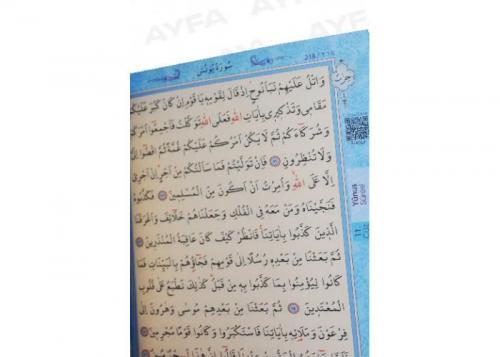 AYFA
سُورَةُ يُونُسَ
وَاتْلُ عَلَيْهِمْ نَبَاَ نُوحٍ اِذْ قَالَ لِقَوْمِهِ يَا قَوْمِ اِنْ كَانَ كَبُرَ عَلَيْكُمْ
مَقَامِى وَتَذْكِيرِى بِاٰيَاتِ اللّٰهِ فَعَلَى اللّٰهِ تَوَكَّلْتُ فَاَجْمِعُٓوا اَمْرَكُمْ
وَشُرَكَٓاءَكُمْ ثُمَّ لَا يَكُنْ اَمْرُكُمْ عَلَيْكُمْ غُمَّةً ثُمَّ اقْضُٓوا
وَلَا تُنْظِرُونِ ٧١ فَاِنْ تَوَلَّيْتُمْ فَمَا سَاَلْتُكُمْ مِنْ اَجْرٍ اِنْ اَجْرِىَ
اِلَّا عَلَى اللّٰهِ وَاُمِرْتُ اَنْ اَكُونَ مِنَ الْمُسْلِمِينَ ٧٢ فَكَذَّبُوهُ
فَنَجَّيْنَاهُ وَمَنْ مَعَهُ فِى الْفُلْكِ وَجَعَلْنَاهُمْ خَلَٓائِفَ وَاَغْرَقْنَا
الَّذِينَ كَذَّبُوا بِاٰيَاتِنَا فَانْظُرْ كَيْفَ كَانَ عَاقِبَةُ الْمُنْذَرِينَ ٧٣
ثُمَّ بَعَثْنَا مِنْ بَعْدِهِ رُسُلًا اِلٰى قَوْمِهِمْ فَجَٓاؤُهُمْ بِالْبَيِّنَاتِ فَمَا
كَانُوا لِيُؤْمِنُوا بِمَا كَذَّبُوا بِهِ مِنْ قَبْلُ كَذٰلِكَ نَطْبَعُ عَلٰى قُلُوبِ
الْمُعْتَدِينَ ٧٤ ثُمَّ بَعَثْنَا مِنْ بَعْدِهِمْ مُوسٰى وَهٰرُونَ اِلٰى
فِرْعَوْنَ وَمَلَا۬ئِهِ بِاٰيَاتِنَا فَاسْتَكْبَرُوا وَكَانُوا قَوْمًا مُجْرِمِينَ
Yûnus
Sûresi
11